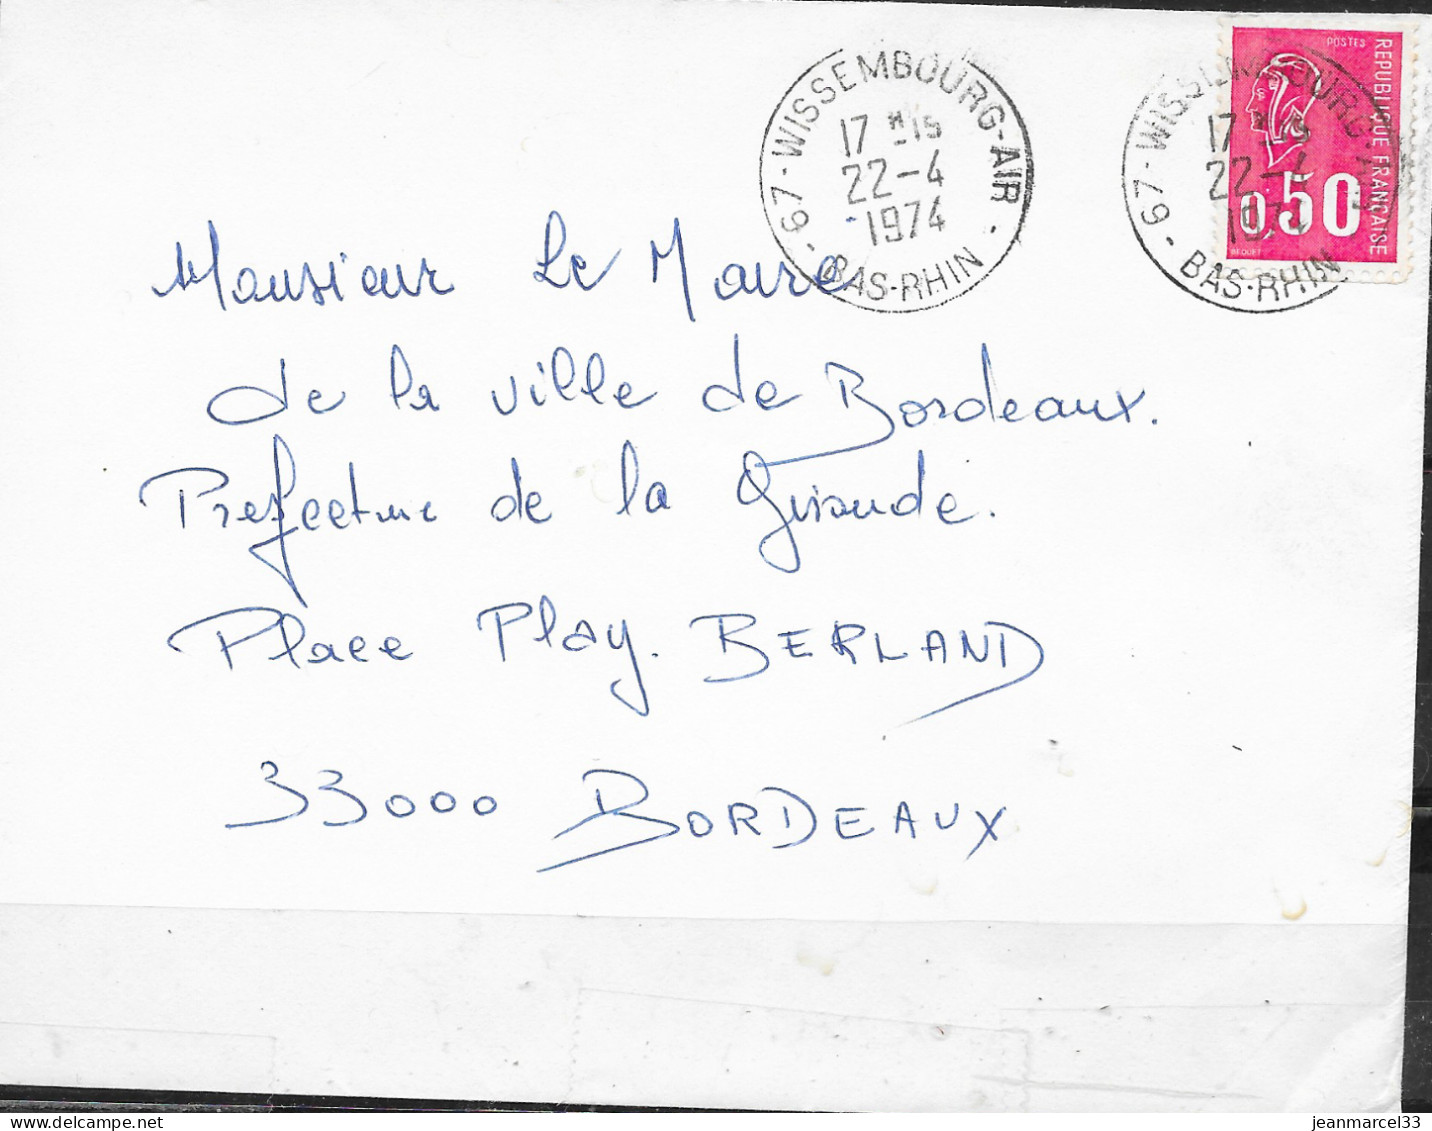 67-WISSEMBOURG-AIR
17 H 15
22-4
1974
- BAS-RHIN -
67-WISSEMBOURG-AIR
17 H 15
22-4
1974
- BAS-RHIN -
POSTES
REPUBLIQUE FRANÇAISE
0,50
BEQUET
Monsieur Le Maire
de la ville de Bordeaux.
Prefecture de la Gironde.
Place Play. BERLAND
33000 BORDEAUX
jeanmarcel33